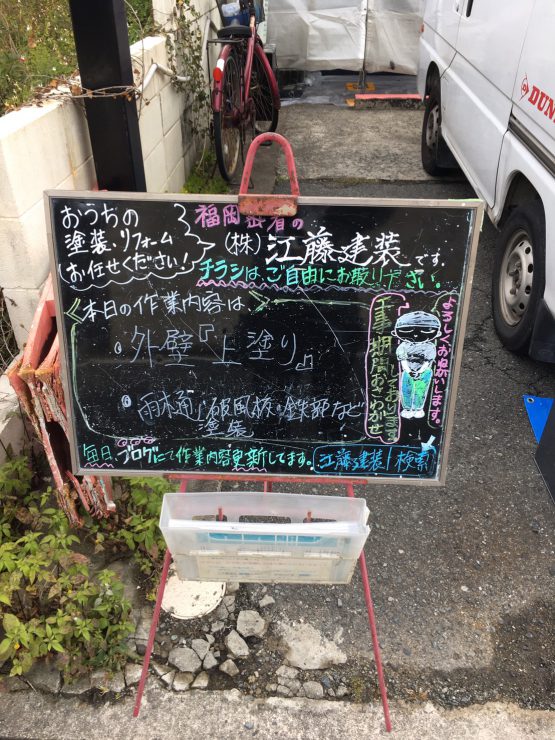 おうちの
塗装・リフォーム
お任せください!
福岡密着の
(株)江藤建装です。
チラシはご自由にお取りください。
本日の作業内容は
。外壁『上塗り』
。雨木通・破風板・鉄部など
塗装
よろしくお願いします。
工事期間中
おさわがせ
しております
毎日ブログにて作業内容更新してます。
江藤建装 検索
DUN